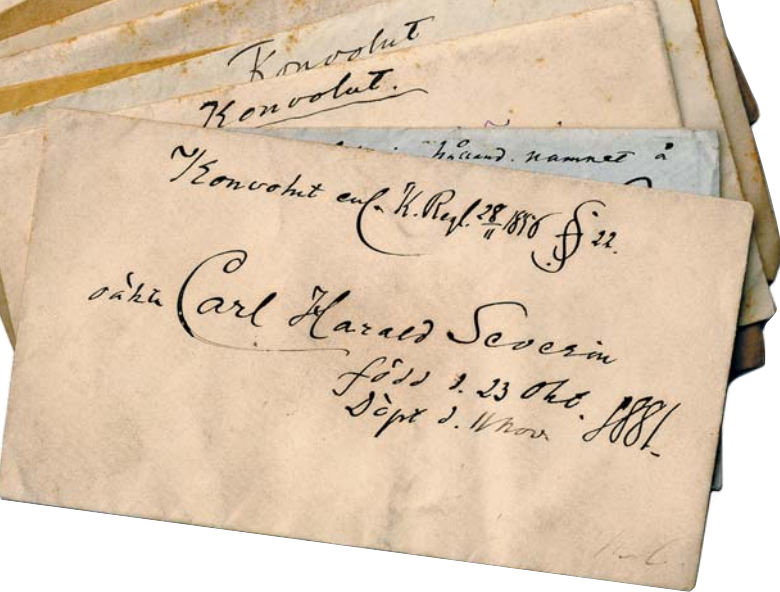 Konvolut
Konvolut.
namnet å
Konvolut enl. K. Regl. 28/11 1896 § 22.
oäkta Carl Harald Severin
född d. 23 Okt. 1881.
Döpt d. 11 nov.